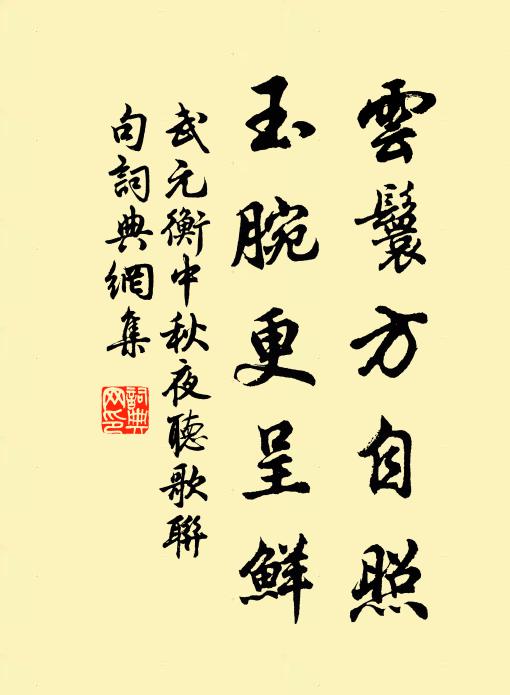 雲鬟方自照
玉腕更呈鮮
武元衡中秋夜聽歌聯
句詞典網集
詞典
網印